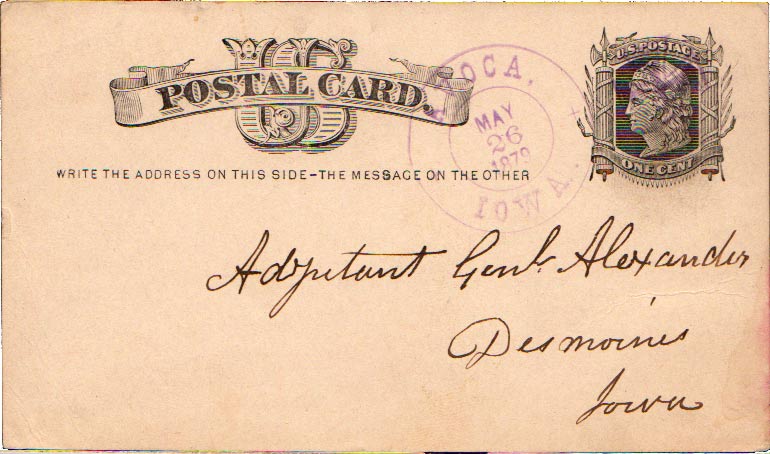 US
POSTAL CARD.
WRITE THE ADDRESS ON THIS SIDE–THE MESSAGE ON THE OTHER
U.S. POSTAGE
ONE CENT
OCA.
MAY
26
1879
IOWA.
Adjutant Genl. Alexander
Desmoines
Iowa